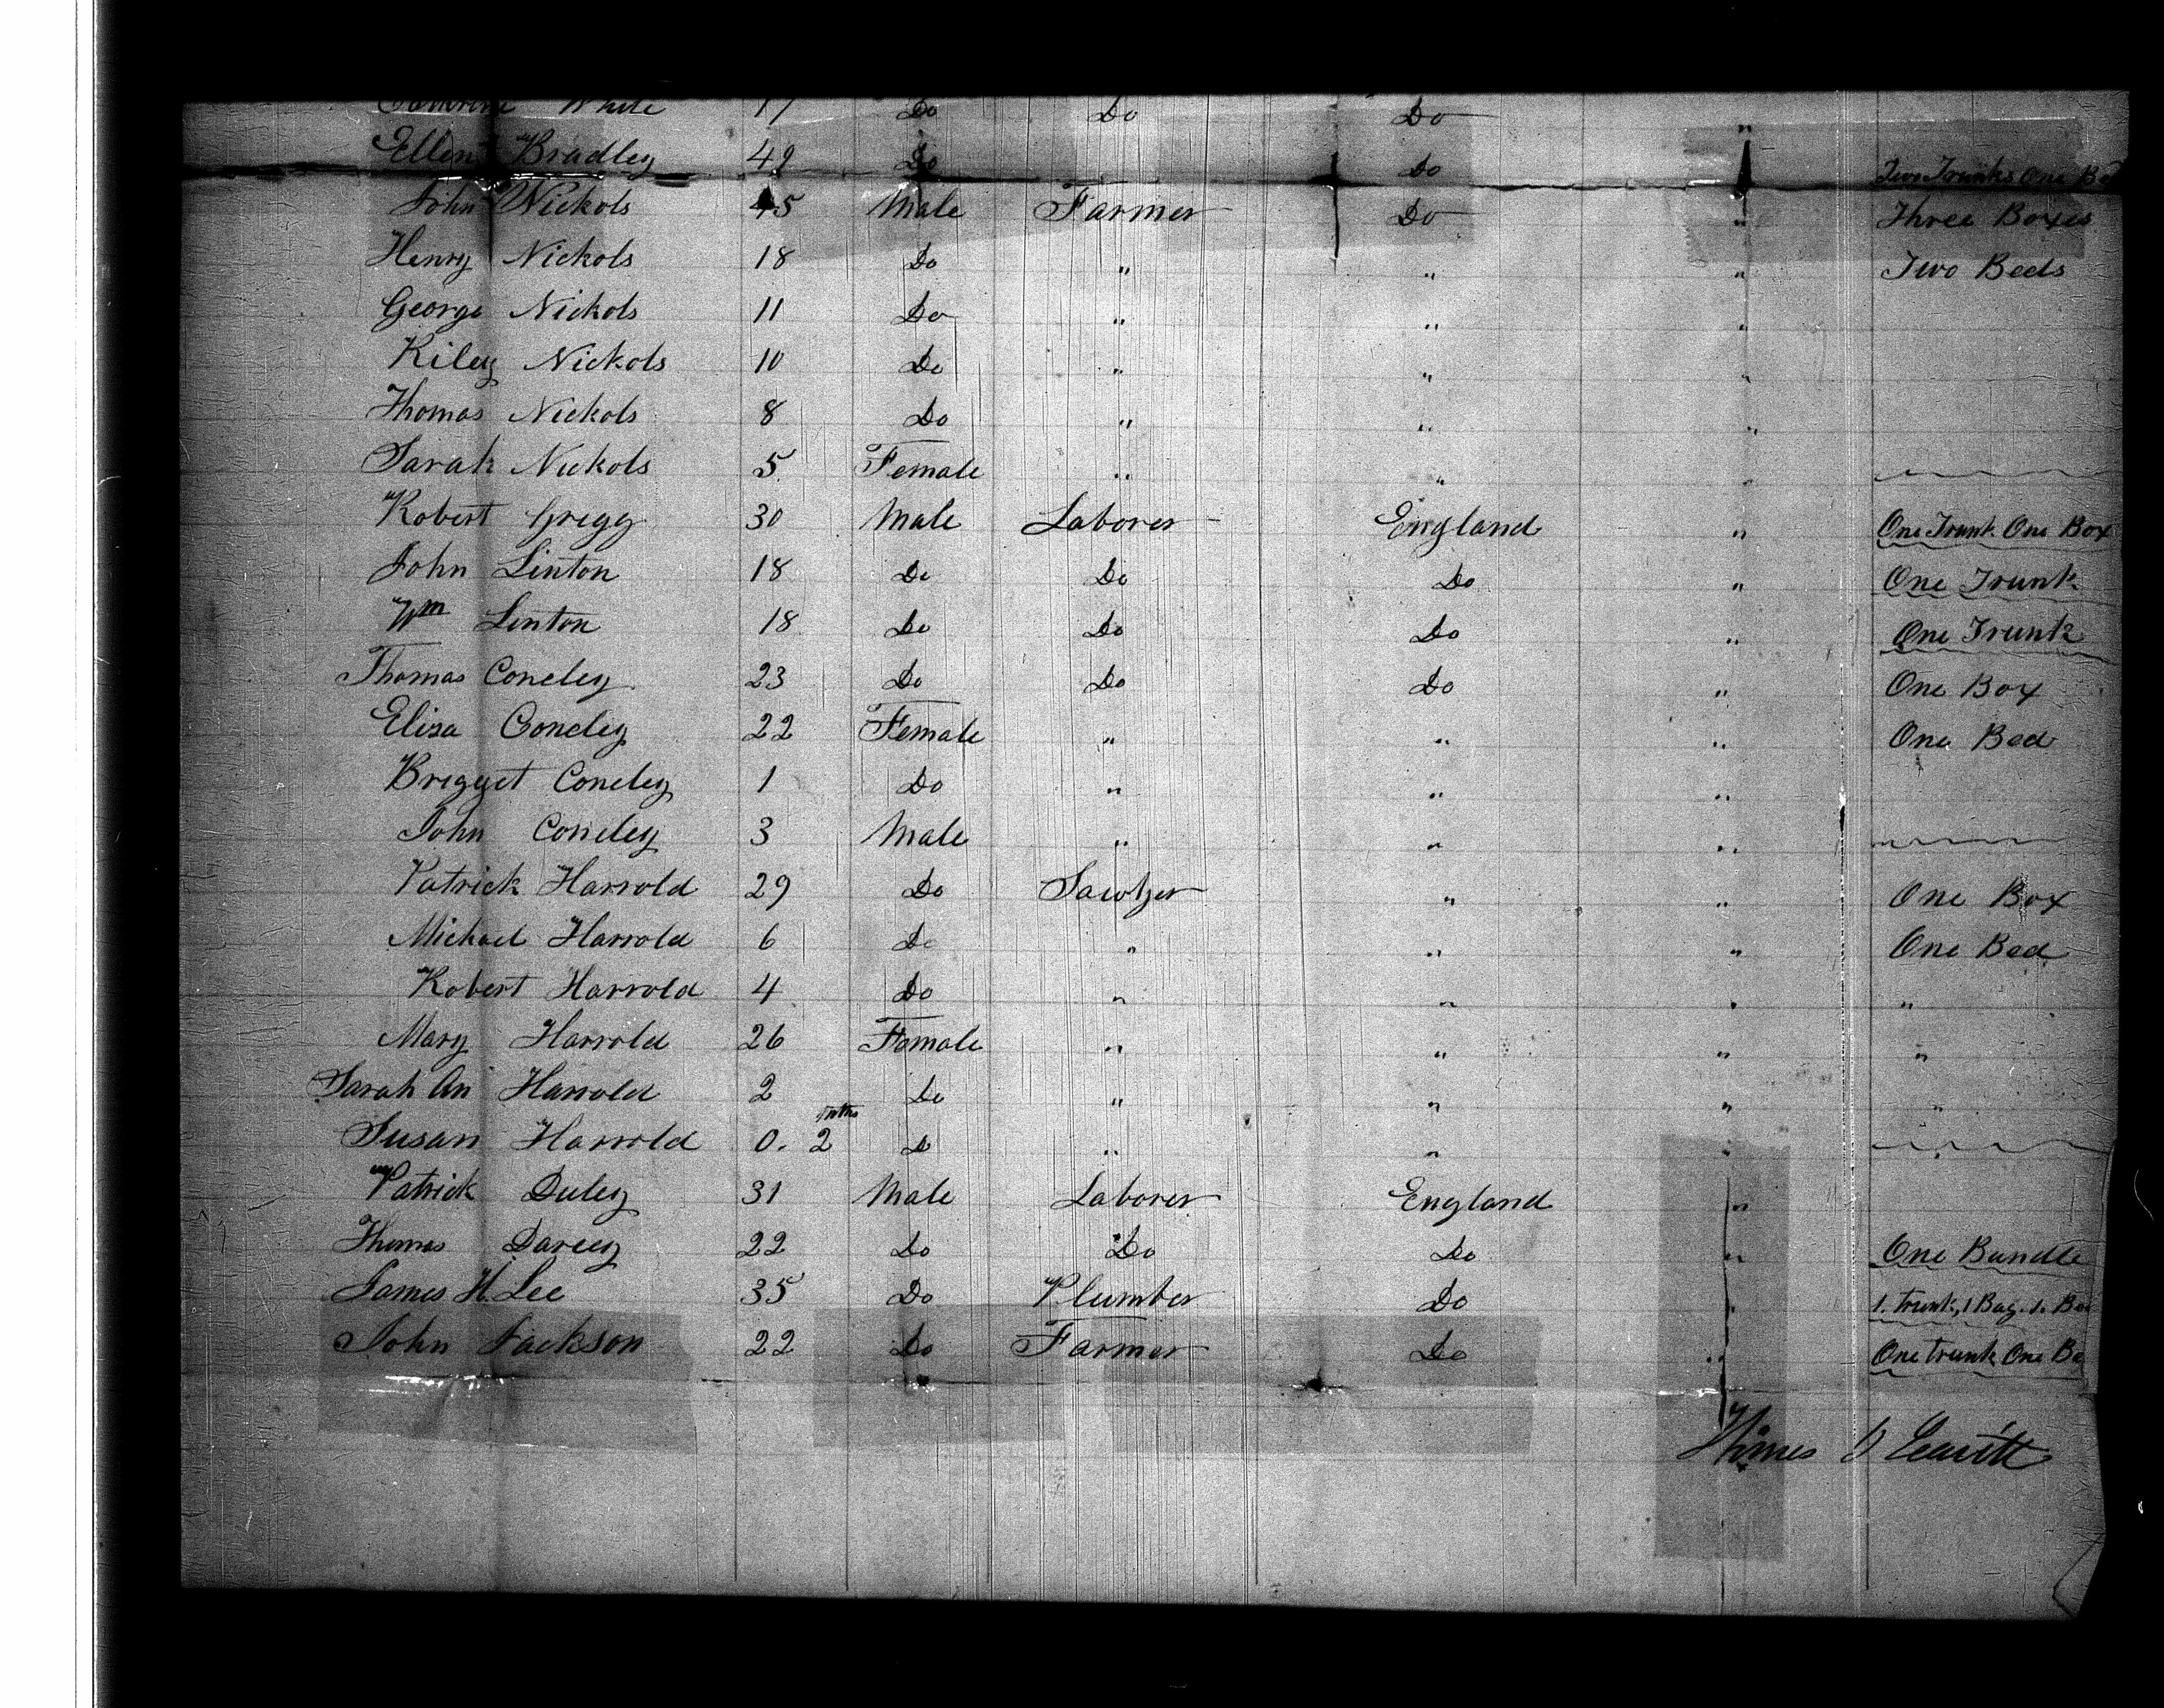 White 17 Do Do Do "
Ellen Bradley 49 Do Do Two Trunks One Bed
John Nickols 45 Male Farmer Do " Three Boxes
Henry Nickols 18 Do " " " Two Beds
George Nickols 11 Do " " "
Riley Nickols 10 Do " " "
Thomas Nickols 8 Do " " "
Sarah Nickols 5 Female " " "
Robert Gregg 30 Male Laborer England " One Trunk One Box
John Linton 18 Do Do Do " One Trunk
Wm Linton 18 Do Do Do " One Trunk
Thomas Coneley 23 Do Do Do " One Box
Eliza Coneley 22 Female " " " One Bed
Brigget Coneley 1 Do " " "
John Coneley 3 Male " " "
Patrick Harrold 29 Do " " One Box
Michael Harrold 6 Do " " " One Bed
Robert Harrold 4 Do " " " "
Mary Harrold 26 Female " " " "
Sarah An Harrold 2 Do " " " "
Susan Harrold 0. 2 mths D " " "
Patrick Duley 31 Male Laborer England "
Thomas Darcey 22 Do Do Do " One Bundle
James H. Lee 35 Do Plumber Do " 1. Trunk, 1 Bag. 1. Bed
John Jackson 22 Do Farmer Do " One trunk One Be
Leavitt